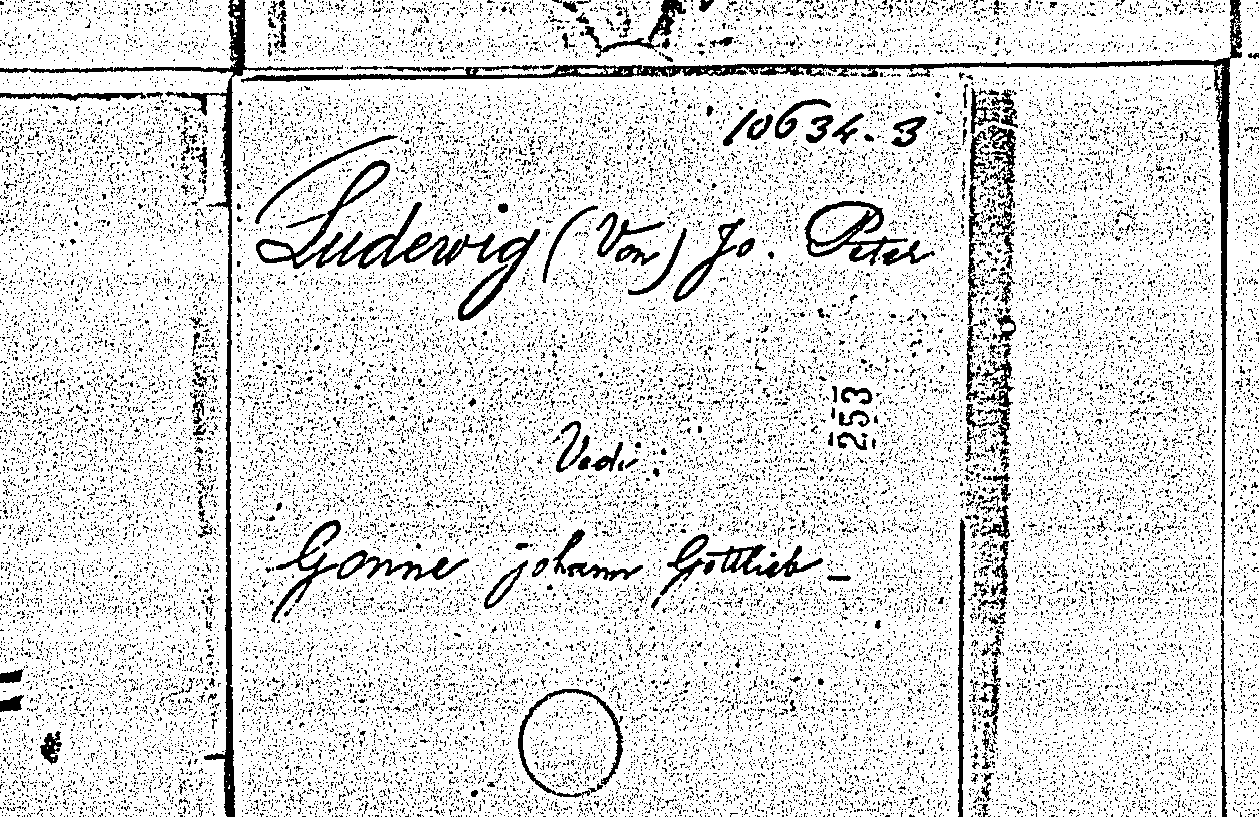 10634.3
Ludewig (Von) Jo. Peter
253
Vedi:
Gonne johann Gottlieb –